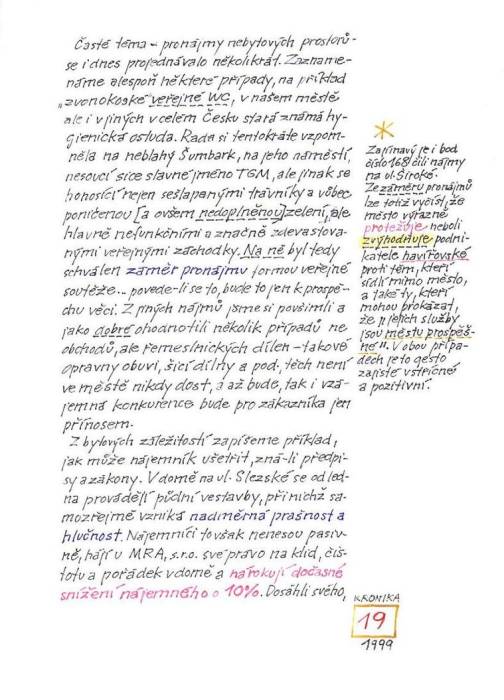 Časté téma – pronájmy nebytových prostorů –
se i dnes projednávalo několikrát. Zazname-
náme alespoň některé případy, na příklad
„zvonokoské veřejné WC, v našem městě
ale i v jiných v celém Česku stará známá hy-
gienická ostuda. Rada si tentokráte vzpom-
něla na neblahý Šumbark, na jeho náměstí,
nesoucí sice slavné jméno TGM, ale jinak se
honosící nejen sešlapanými trávníky a vůbec
poničenou [a ovšem nedoplněnou] zelení, ale
hlavně nefunkčními a značně zdevastova-
nými veřejnými záchodky. Na ně byl tedy
schválen záměr pronájmu formou veřejné
soutěže... povede-li se to, bude to jen k prospě-
chu věci. Z jiných nájmů jsme si povšimli a
jako dobré ohodnotili několik případů ne
obchodů, ale řemeslnických dílen – takové
opravny obuvi, šicí dílny a pod., těch není
ve městě nikdy dost, a až bude, tak i vzá-
jemná konkurence bude pro zákazníka jen
přínosem.
Z bytových záležitostí zapíšeme příklad,
jak může nájemník ušetřit, zná-li předpi-
sy a zákony. V domě na ul. Slezské se od led-
na provádějí půdní vestavby, při nichž sa-
mozřejmě vzniká nadměrná prašnost a
hlučnost. Nájemníci to však nenesou pasiv-
ně, hájí u MRA, s.r.o. své právo na klid, čis-
totu a pořádek v domě a nárokují dočasné
snížení nájemného o 10%. Dosáhli svého,
Zajímavý je i bod
číslo 168 čili nájmy
na ul. Široké.
Ze záměru pronájmů
lze totiž vyčíst, že
město výrazně
protežuje neboli
zvýhodňuje podni-
katele havířovské
proti těm, kteří
sídlí mimo město,
a také ty, kteří
mohou prokázat,
že „jejich služby
jsou městu prospěš-
né“. V obou přípa-
dech je to gesto
zajisté vstřícné
a pozitivní.
KRONIKA
19
1999